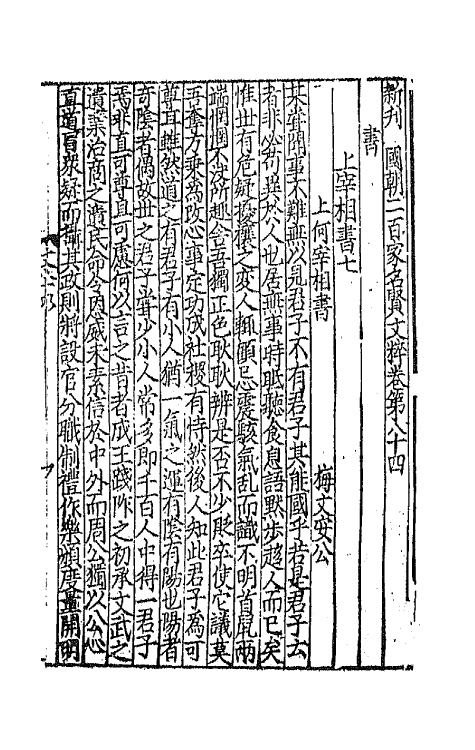 新刊國朝二百家名賢文粹卷第八十四
書
上宰相書七
上何宰相書
梅文安公
某聞事不難無以見君子不有君子其能國乎若安君子云
者非必苟異於人也居無事時眡聽食息語默步趍人而已矣
惟世有危疑擾攘之變人輒顛忘震駭氣乱而識不明首鼠兩
端惘惘不沒所趣舎吾獨正色耿耿辨是否不少貶卒使它議莫
吾奪力乘爲改心事定功成社稷有恃然後人知此君子爲可
尊且雖然道之有君子有小人猶一氣之運有陰有陽也陽者
奇陰者偶故世之君子常少小人常多即千百人中得一君子
焉非直可尊且可慮何以言之昔者成王踐阼之初承文武之
遺業治商之遺民命令恩威未素信於中外而周公獨以公心
直道冒衆疑而攝其政則將設官分職制禮作樂頒度量開明